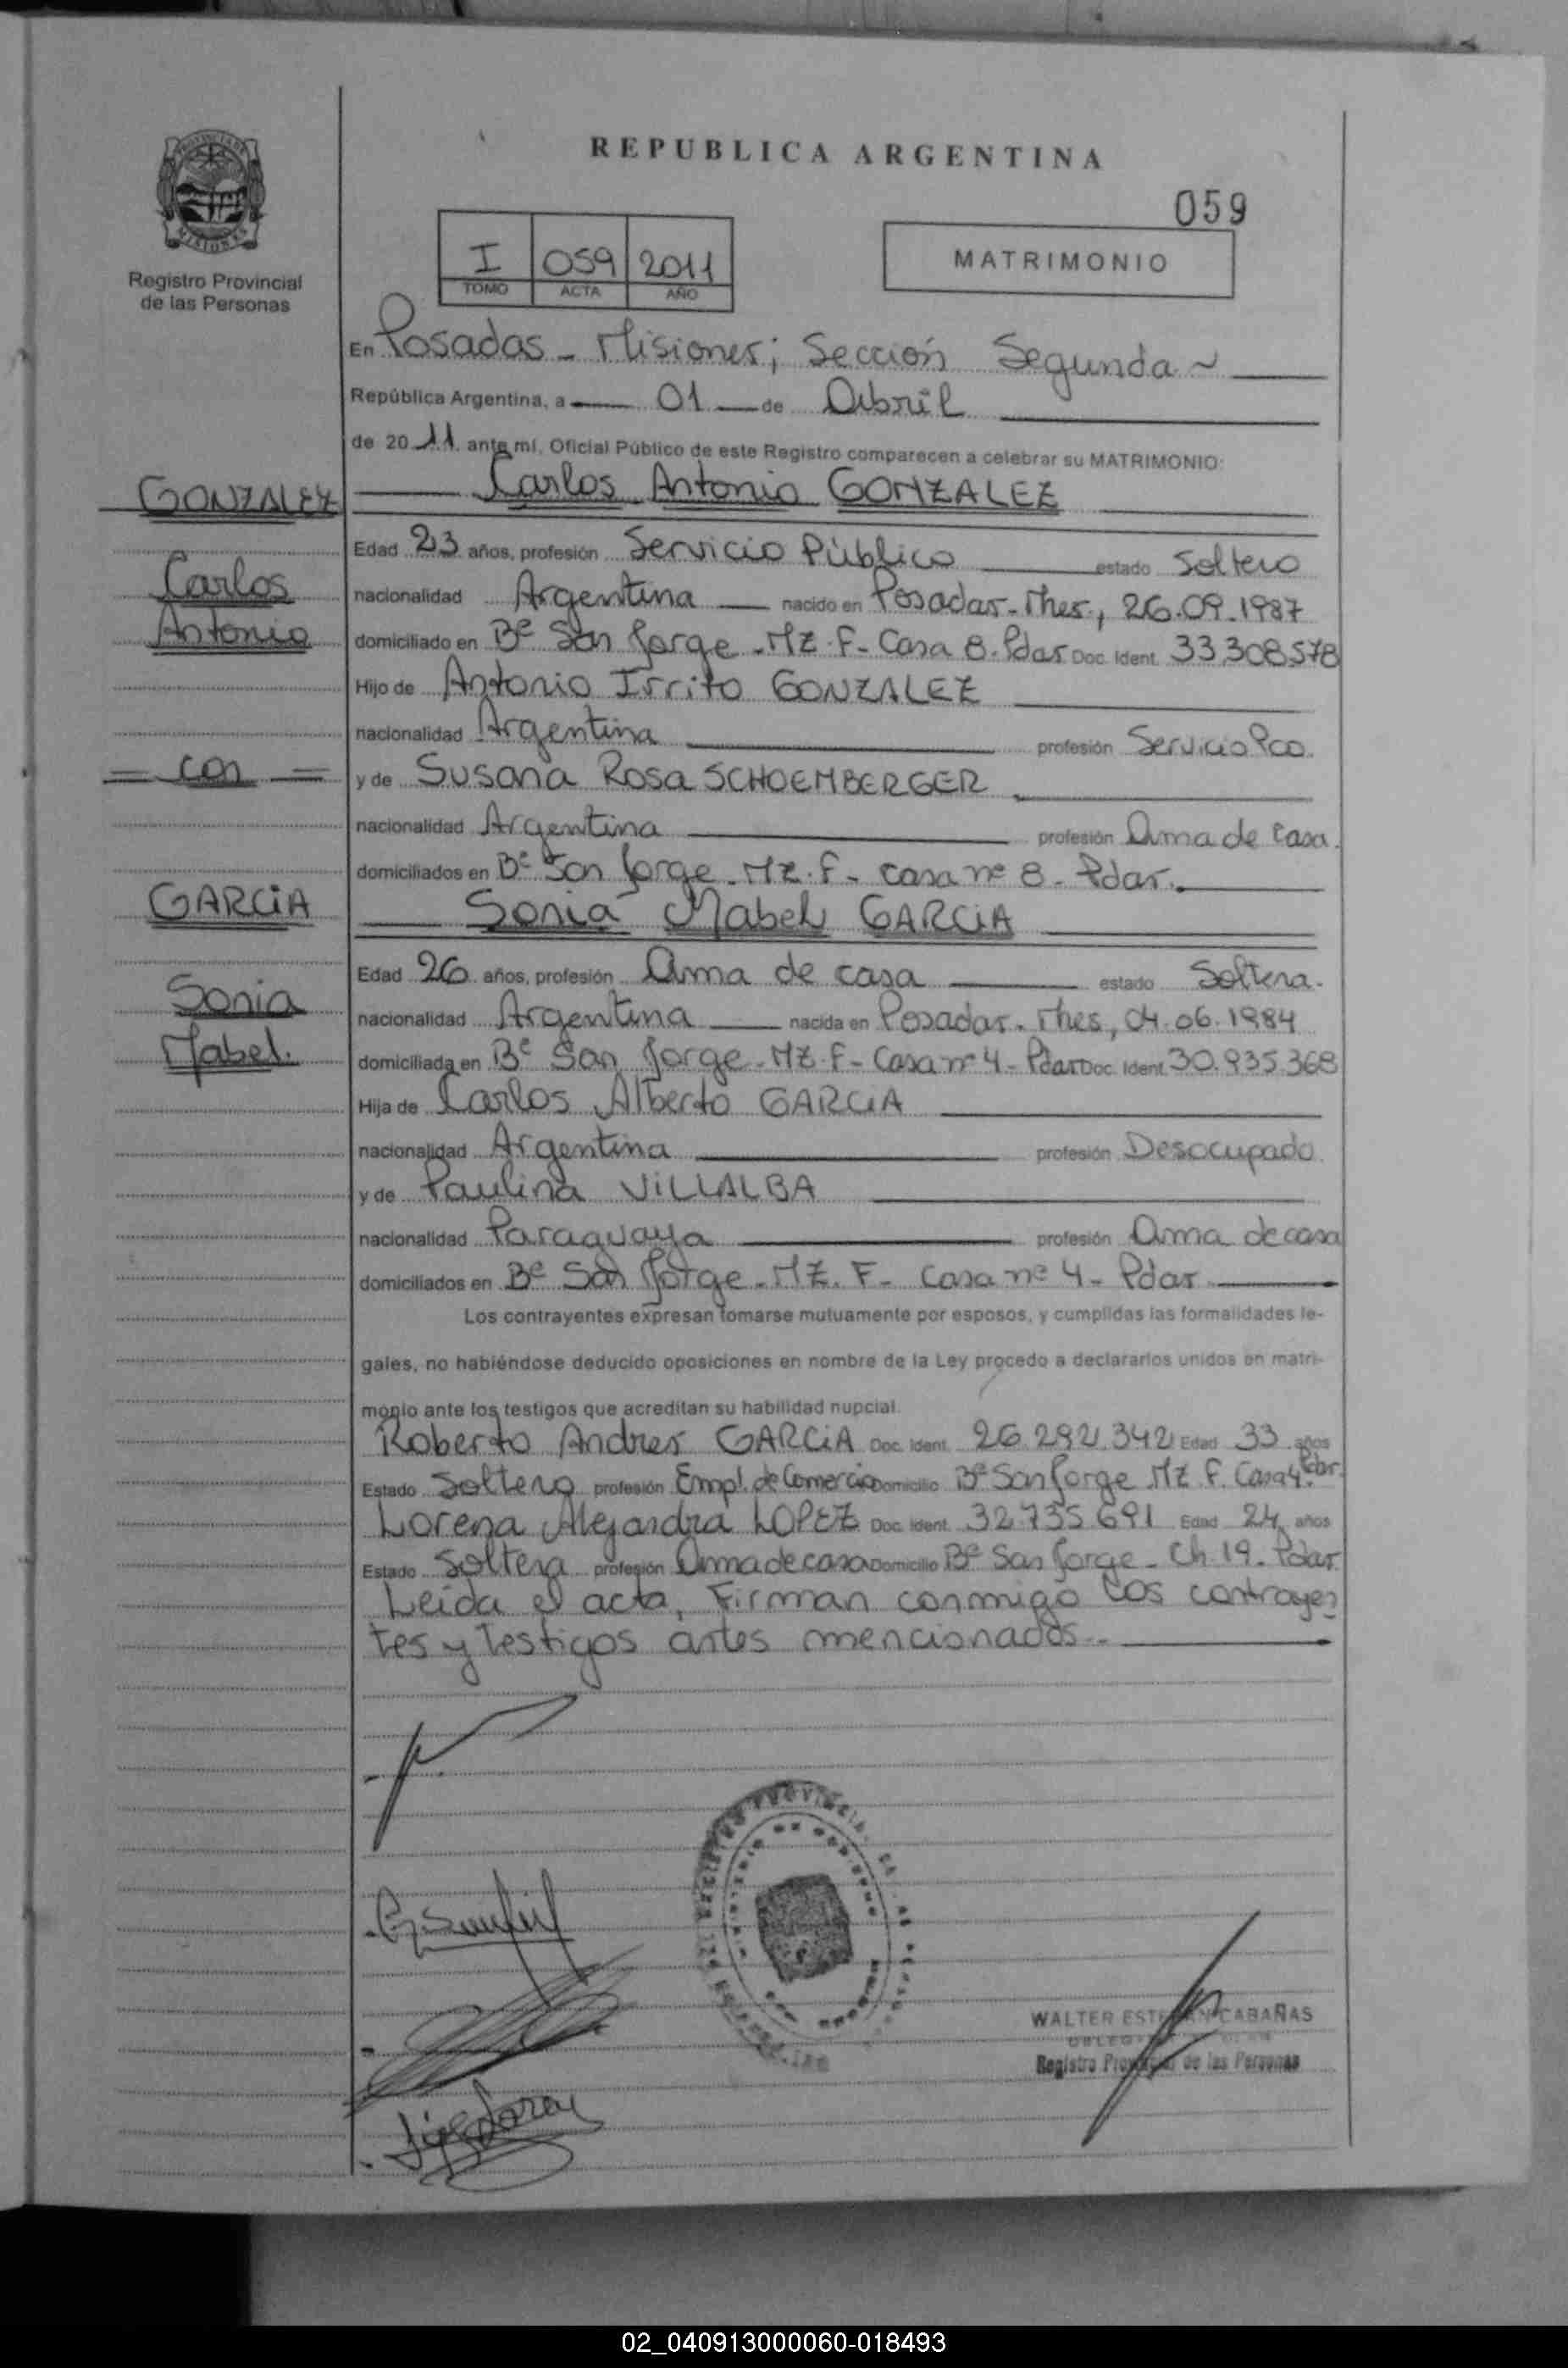 REPUBLICA ARGENTINA
059
PROVINCIA DE
MISIONES
Registro Provincial
de las Personas
I 059 2011
TOMO ACTA AÑO
MATRIMONIO
En Posadas - Misiones; Sección Segunda ~
República Argentina, a 01 de Abril
de 20 11 ante mí, Oficial Público de este Registro comparecen a celebrar su MATRIMONIO:
GONZALEZ
Carlos Antonio GONZALEZ
Edad 23 años, profesión Servicio Público estado Soltero
Carlos
nacionalidad Argentina nacido en Posadas-Mnes., 26.09.1987
Antonio
domiciliado en Bº San Jorge - MZ. F - Casa 8. Pdas Doc. Ident. 33.308.578
Hijo de Antonio Irrito GONZALEZ
nacionalidad Argentina profesión Servicio Pco.
= con =
y de Susana Rosa SCHOEMBERGER
nacionalidad Argentina profesión Ama de Casa.
domiciliados en Bº San Jorge - MZ. F - Casa nº 8 - Pdas.
GARCIA
Sonia Mabel GARCIA
Edad 26 años, profesión Ama de casa estado Soltera.
Sonia
nacionalidad Argentina nacida en Posadas - Mnes, 04.06.1984
Mabel.
domiciliada en Bº San Jorge - MZ. F - Casa nº 4 - Pdas Doc. Ident. 30.935.368
Hija de Carlos Alberto GARCIA
nacionalidad Argentina profesión Desocupado
y de Paulina VILLALBA
nacionalidad Paraguaya profesión Ama de casa
domiciliados en Bº San Jorge - MZ. F - Casa nº 4 - Pdas
Los contrayentes expresan tomarse mutuamente por esposos, y cumplidas las formalidades le-
gales, no habiéndose deducido oposiciones en nombre de la Ley procedo a declararlos unidos en matri-
monio ante los testigos que acreditan su habilidad nupcial.
Roberto Andres GARCIA Doc. Ident. 26.292.342 Edad 33 años
Estado Soltero profesión Empl. de Comercio Domicilio Bº San Jorge MZ. F. Casa 4. Pdas.
Lorena Alejandra LOPEZ Doc. Ident. 32.735.691 Edad 24 años
Estado Soltera profesión Ama de casa Domicilio Bº San Jorge - Ch. 19 - Pdas.
Leída el acta, Firman conmigo los contrayen
tes y testigos antes mencionados.-
WALTER ESTEBAN CABAÑAS
Registro Provincial de las Personas
02_040913000060-018493